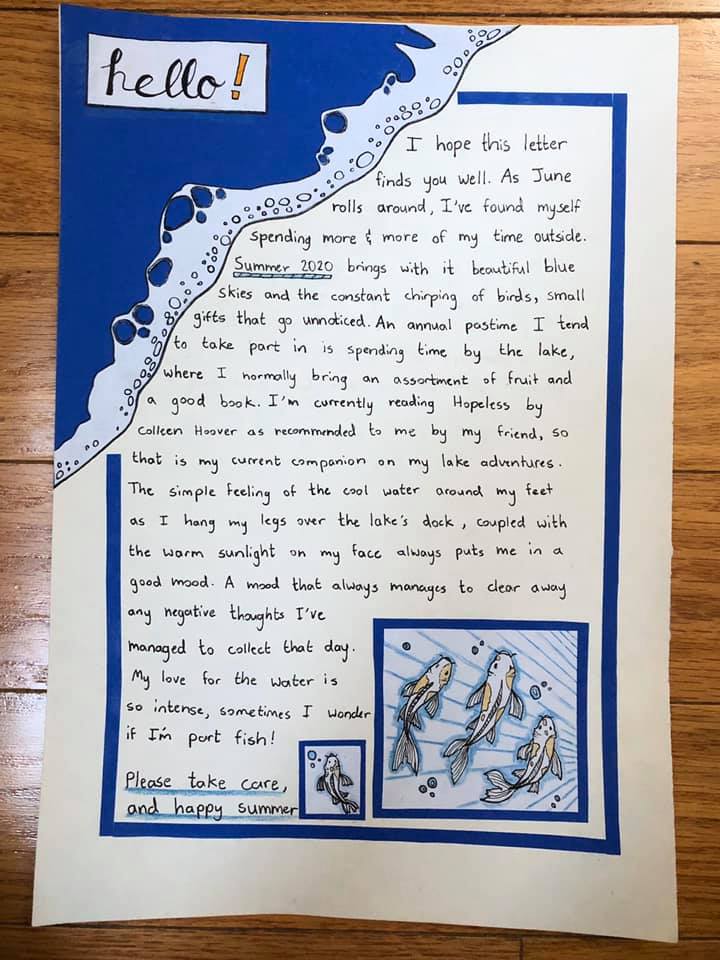 hello!
I hope this letter
finds you well. As June
rolls around, I've found myself
spending more & more of my time outside.
Summer 2020 brings with it beautiful blue
skies and the constant chirping of birds, small
gifts that go unnoticed. An annual pastime I tend
to take part in is spending time by the lake,
where I normally bring an assortment of fruit and
a good book. I'm currently reading Hopeless by
Colleen Hoover as recommended to me by my friend, so
that is my current companion on my lake adventures.
The simple feeling of the cool water around my feet
as I hang my legs over the lake's dock, coupled with
the warm sunlight on my face always puts me in a
good mood. A mood that always manages to clear away
any negative thoughts I've
managed to collect that day.
My love for the water is
so intense, sometimes I wonder
if I'm part fish!
Please take care,
and happy summer